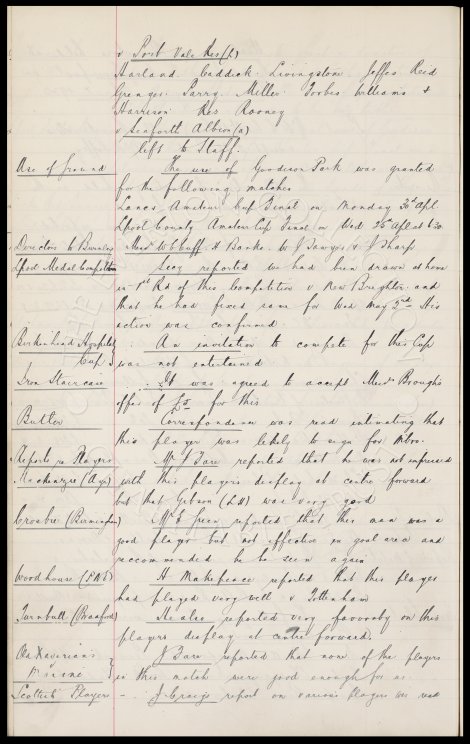 v Port Vale Res (h)
Harland Caddick Livingstone Jeffes Reid
Grenyer Parry Miller Forbes Williams &
Harrison Res Rooney
v Seaforth Albion (a)
left to Staff.
Use of Ground The use of Goodison Park was granted
for the following matches
Lancs Amateur Cup Final on Monday 30th Apl
Lpool County Amateur Cup Final on Wed 25th Apl at 6.30
Directors to Burnley Messrs W C Cuff A Banks W J Sawyer & J Sharp
Lpool Medal Competition Secy reported we had been drawn at home
in 1st Rd of this Competition v New Brighton and
that he had fixed same for Wed May 2nd His
action was confirmed.
Birkenhead Hospital An invitation to compete for this Cup
Cup was not entertained
Iron Staircase It was agreed to accept Messrs Broughs
offer of for this
Butler Correspondence was read intimating that
this player was likely to sign for
Reports re Players Mr J Bare reported that he was not impressed
Mackenzie (Ayr) with this players display at centre forward
but that Gibson (LH) was very good
Crosbie (Birmingham) Mr E Green reported that this man was a
good player but not effective in goal area and
recommended he be seen again
Woodhouse (P.N.E) H Makepeace reported that this player
had played very well v Tottenham
Turnbull (Bradford) He also reported very favourably on this
players display at centre forward.
Old Xaverians J Bare reported that none of the players
v in this match were good enough for us.
Scottish Players J Craig's report on various players was read